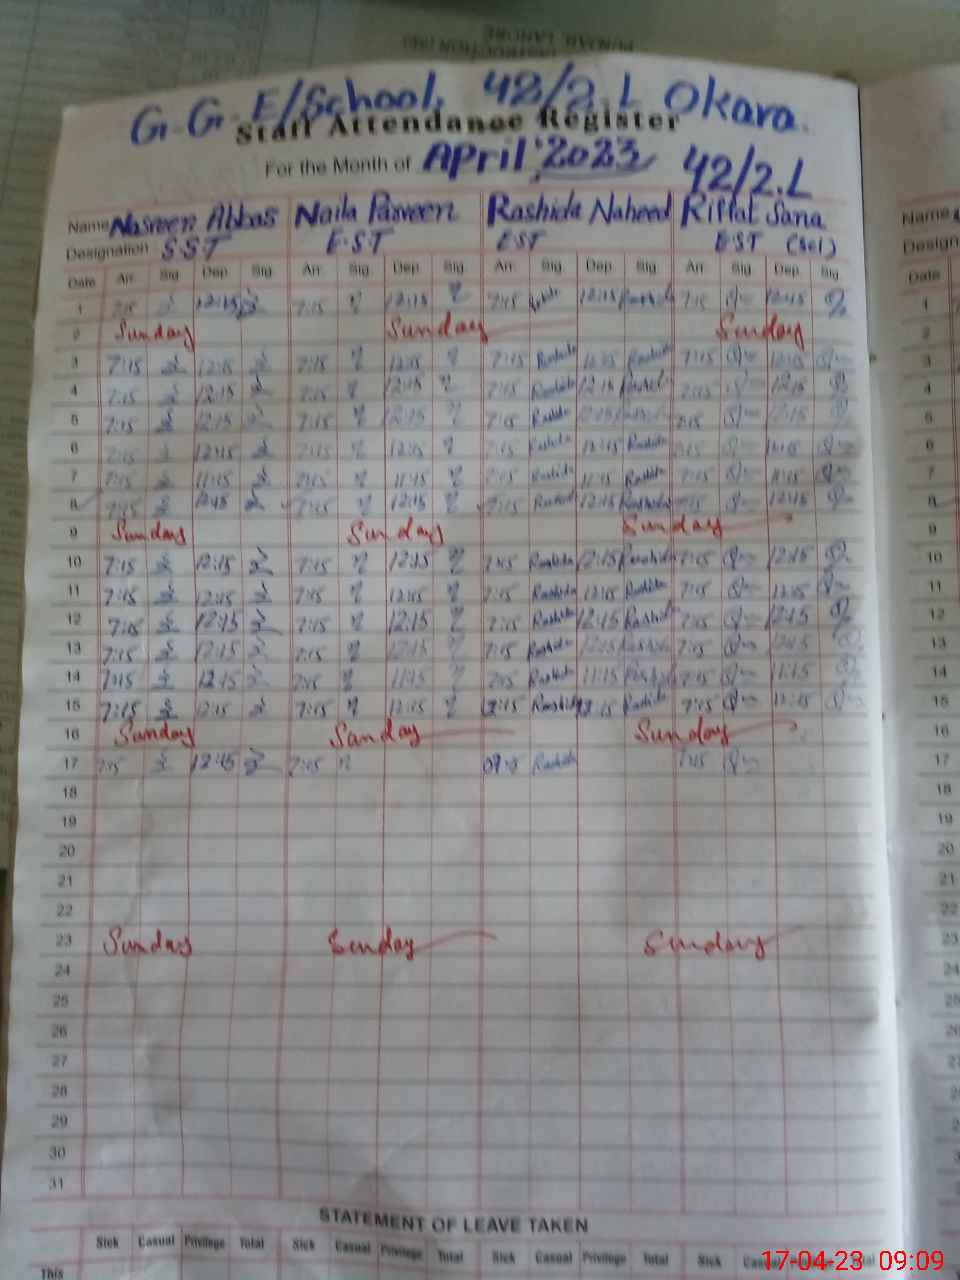 G.G.E/School. 42/2.L Okara.
Staff Attendance Register
For the Month of April 2023 42/2.L
Name Nasreen Abbas Naila Parveen Rashida Naheed Riffat Sana
Designation S.S.T E.S.T EST EST (Sci)
Date Arr. Sig. Dep. Sig. Arr. Sig. Dep. Sig. Arr. Sig. Dep. Sig. Arr. Sig. Dep. Sig.
1 7:15 12:15 7:15 12:15 7:15 12:15 Rashida 7:15 12:15
2 Sunday Sunday Sunday
3 7:15 12:15 7:15 12:15 7:15 Rashida 12:15 Rashida 7:15 12:15
4 7:15 12:15 7:15 12:15 7:15 Rashida 12:15 7:15 12:15
5 7:15 12:15 7:15 12:15 7:15 Rashida 12:15 7:15 12:15
6 7:15 12:15 7:15 12:15 7:15 Rashida 12:15 Rashida 7:15 12:15
7 7:15 11:15 7:15 11:15 7:15 Rashida 11:15 Rashida 7:15 11:15
8 7:15 12:15 7:15 12:15 7:15 Rashida 12:15 Rashida 7:15 12:15
9 Sunday Sunday Sunday
10 7:15 12:15 7:15 12:15 7:15 Rashida 12:15 Rashida 7:15 12:15
11 7:15 12:15 7:15 12:15 7:15 Rashida 12:15 Rashida 7:15 12:15
12 7:15 12:15 7:15 12:15 7:15 Rashida 12:15 Rashida 7:15 12:15
13 7:15 12:15 7:15 12:15 7:15 Rashida 12:15 Rashida 7:15 12:15
14 7:15 12:15 7:15 11:15 7:15 Rashida 11:15 Rashida 7:15 11:15
15 7:15 12:15 7:15 12:15 7:15 Rashida 12:15 Rashida 7:15 12:15
16 Sunday Sunday Sunday
17 7:15 12:15 7:15 Rashida 7:15
18
19
20
21
22
23 Sunday Sunday Sunday
24
25
26
27
28
29
30
31
STATEMENT OF LEAVE TAKEN
Sick Casual Privilege Total Sick Casual Privilege Total Sick Casual Privilege Total Sick
This
17-04-23 09:09